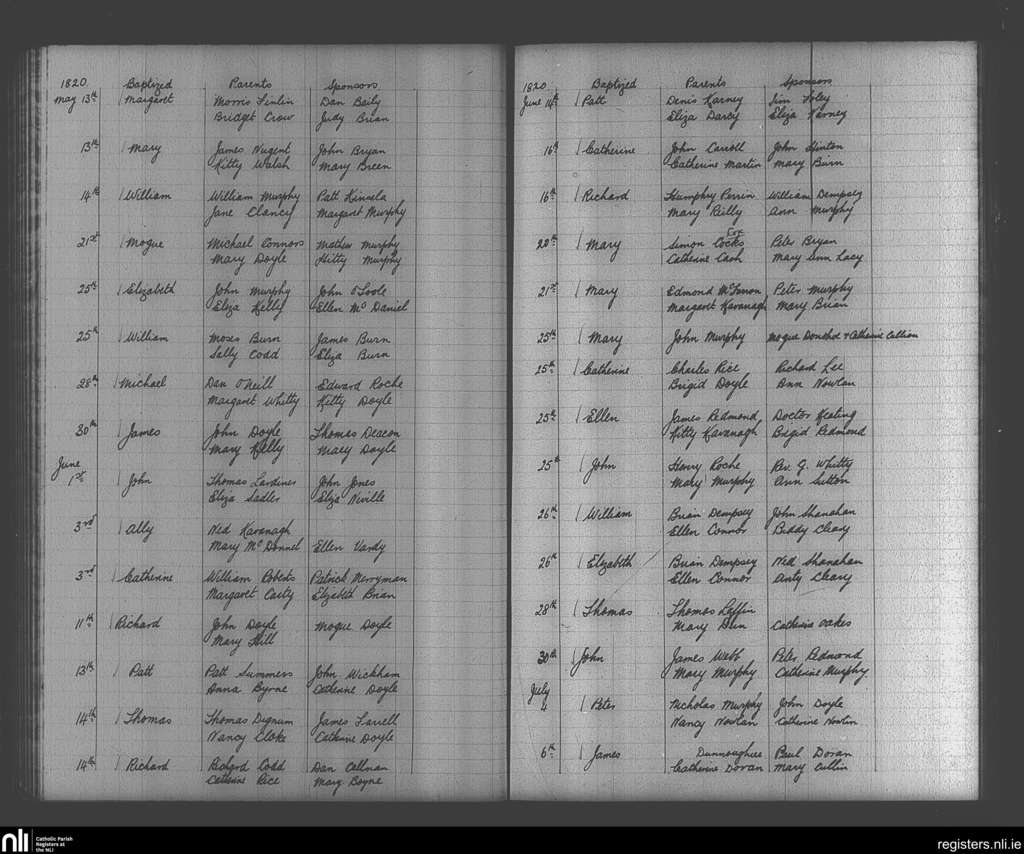 1820 Baptized Parents Sponsors
May 13th Margaret Morris Sinlin Dan Baily
Bridget Crow Judy Brian
13th Mary James Nugent John Bryan
Kitty Walsh Mary Breen
14th William William Murphy Patt Kinsela
Jane Clancy Margaret Murphy
21st Mogue Michael Connors Mathew Murphy
Mary Doyle Kitty Murphy
25th Elizabeth John Murphy John O'Toole
Eliza Kelly Ellen Mc Daniel
25th William Moses Burn James Burn
Sally Codd Eliza Burn
28th Michael Dan O'Neill Edward Roche
Margaret Whitty Kitty Doyle
30th James John Doyle Thomas Deacon
Mary Kelly Mary Doyle
June
1st John Thomas Lardiner John Jones
Eliza Sadler Eliza Neville
3rd Ally Ned Kavanagh
Mary Mc Donnel Ellen Vardy
3rd Catherine William Roberts Patrick Merryman
Margaret Casty Elizabeth Brian
11th Richard John Doyle Mogue Doyle
Mary Hill
13th Patt Patt Summers John Wickham
Anna Byrne Catherine Doyle
14th Thomas Thomas Dignum James Farrell
Nancy Cloke Catherine Doyle
14th Richard Richard Codd Dan Callnan
Catherine Rice Mary Boyne
1820 Baptized Parents Sponsors
June 14th Patt Denis Karney Jim Foley
Eliza Darcy Eliza Karney
16th Catherine John Carroll John Hinton
Catherine Martin Mary Birn
16th Richard Humphry Perrin William Dempsey
Mary Reilly Ann Murphy
Cox
20th Mary Simon Cocks Peter Bryan
Catherine Cash Mary Ann Lacy
21st Mary Edmond Peter Murphy
Margaret Kavanagh Mary Brian
25th Mary John Murphy Mogue Donohd + Catherine Callnan
25th Catherine Charles Rice Richard Lee
Brigid Doyle Ann Nowlan
25th Ellen James Redmond Doctor Keating
Kitty Kavanagh Brigid Redmond
25th John Harry Roche Rev. G. Whitty
Mary Murphy Ann Sutton
26th William Brian Dempsey John Shanahan
Ellen Connor Biddy Cleary
26th Elizabeth Brian Dempsey Ned Shanahan
Ellen Connor Anty Cleary
28th Thomas Thomas Laffin
Mary Dun Catherine Oakes
30th John James Webb Peter Redmond
Mary Murphy Catherine Murphy
July
4 Peter Nicholas Murphy John Doyle
Nancy Nowlan Catherine Nowlin
6th James Dunnoughue Paul Doran
Catherine Doran Mary Cullin
nli Catholic Parish
Registers at
the NLI
registers.nli.ie